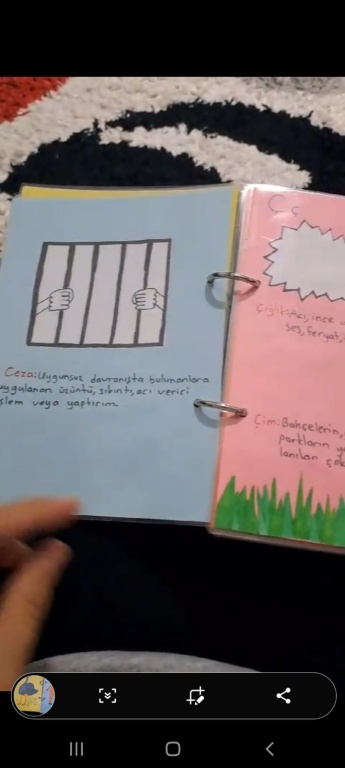 Ceza: Uygunsuz davranışta bulunanlara
uygulanan üzüntü, sıkıntı, acı verici
işlem veya yaptırım.
Ç ç
Çığlık: Acı, ince
ses, feryat,
Çim: Bahçelerin,
parkların
lanılan